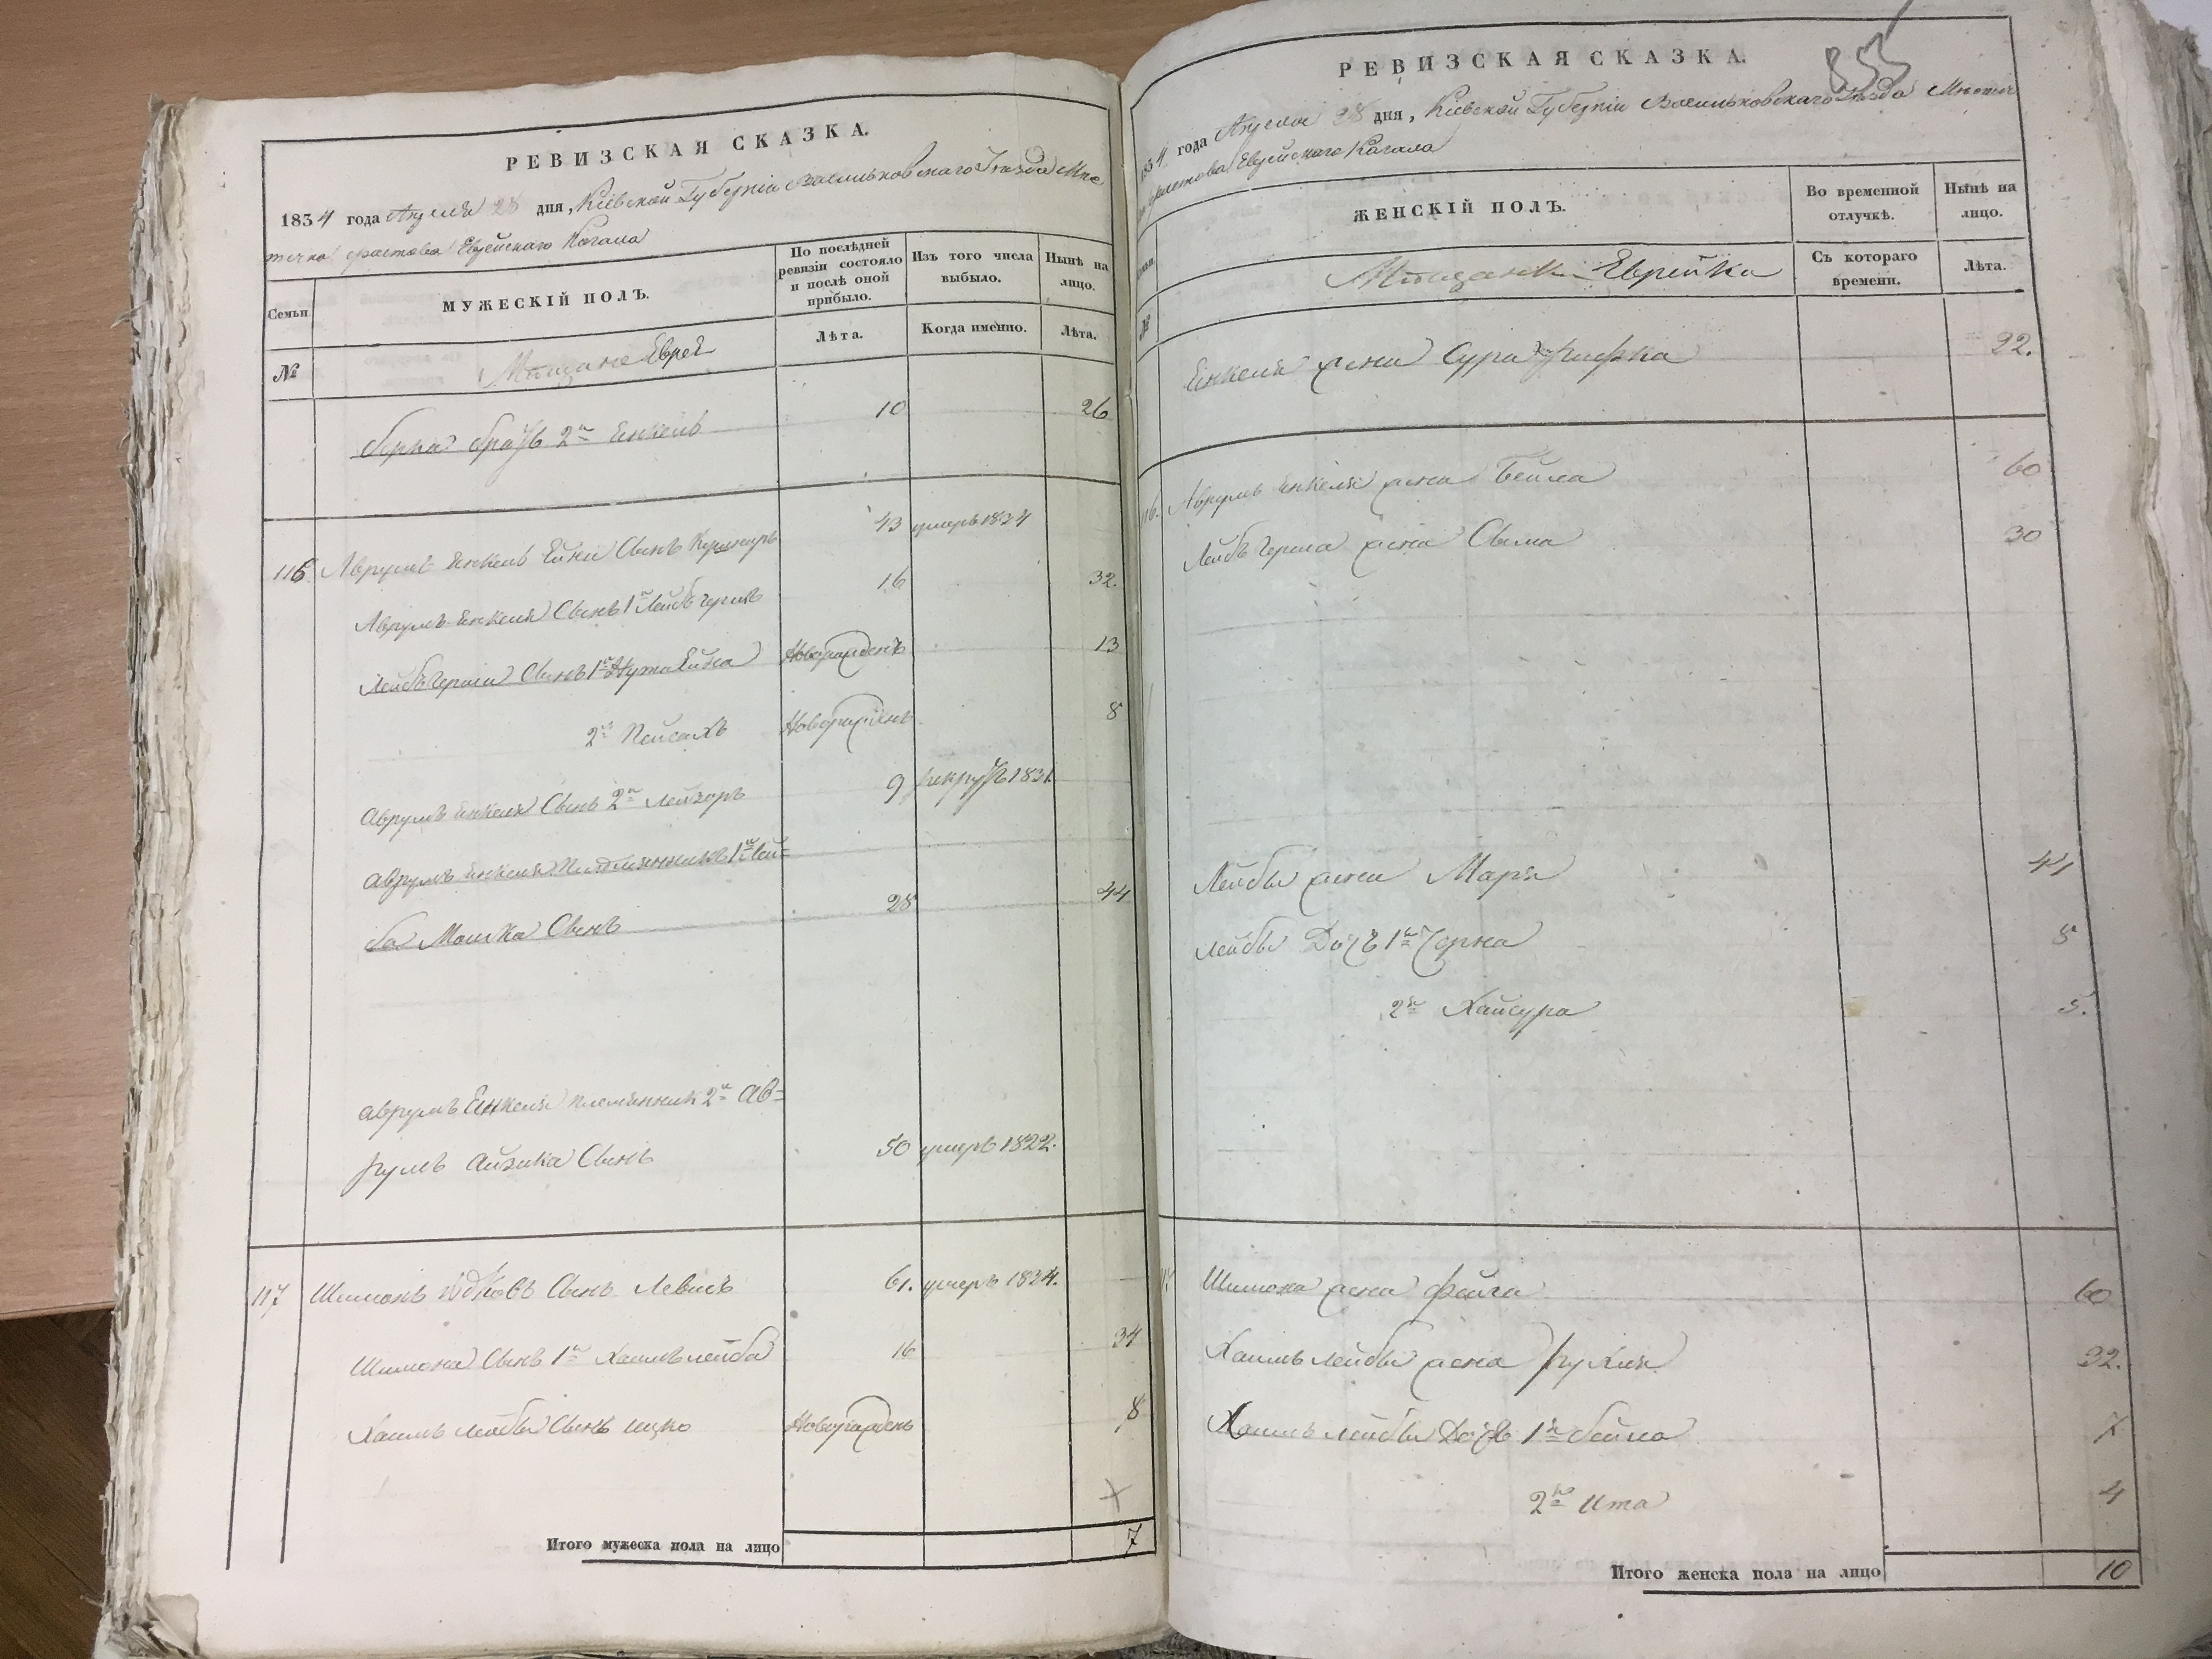 РЕВИЗСКАЯ СКАЗКА.
1834 года Апреля 28 дня, Кіевской Губерніи Васильковскаго Уезда Мѣс
течка Фастова Еврейскаго Кагала
Семьи
МУЖЕСКІЙ ПОЛЪ.
По послѣдней ревизіи состояло и послѣ оной прибыло.
Изъ того числа выбыло.
Нынѣ на лицо.
№
Мѣщане Евреи
Лѣта.
Когда именно.
Лѣта.
Берка братъ 2й Енкель 10 26
116 Аврумъ Енкель Ейни Сынъ 43 умеръ 1834
Аврумъ Енкеля Сынъ 1й Лейбъ Гершъ 16 32.
Лейбъ Герша Сынъ 1й Нута Ейна Новорожденъ 13
2й Пейсахъ Новорожденъ 8
Аврумъ Енкеля Сынъ 2й Лейзоръ 9 рекрутъ 1831
Аврумъ Енкеля Племянникъ 1й Лей=
ба Мошка Сынъ 28 44
Аврумъ Енкеля племянник 2й Ав=
румъ Айзика Сынъ 50 умеръ 1822.
117 Шимонъ Юдковъ Сынъ Левитъ 61. умеръ 1824.
Шимона Сынъ 1й Хаимъ лейба 16 34
Хаимъ лейбы Сынъ ицко Новорожденъ 8
Итого мужеска пола на лицо 7
855
РЕВИЗСКАЯ СКАЗКА.
1834 года Апреля 28 дня, Кіевской Губерніи Васильковскаго Уезда Местеч
ка Фастова Еврейскаго Кагала
Семьи
ЖЕНСКІЙ ПОЛЪ.
Во временной отлучкѣ.
Нынѣ на лицо.
№
Мѣщанки Еврейки
Съ котораго времени.
Лѣта.
Енкеля жена Сура Рифка 22.
116. Аврумъ Енкеля жена Бейла 60
Лейбъ Герша жена Сыма 30
Лейбы жена Маря 44
Лейбы Дочь 1я Черна 8
2я Хайсура 5.
117 Шимона жена Фейга 60
Хаимъ Лейбы жена Рухля 32.
Хаимъ лейбы Дочь 1я бейла 7
2я Ита 4
Итого женска пола на лицо 10